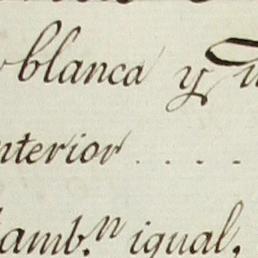 blanca y
nterior . . . .
amb.n igual,